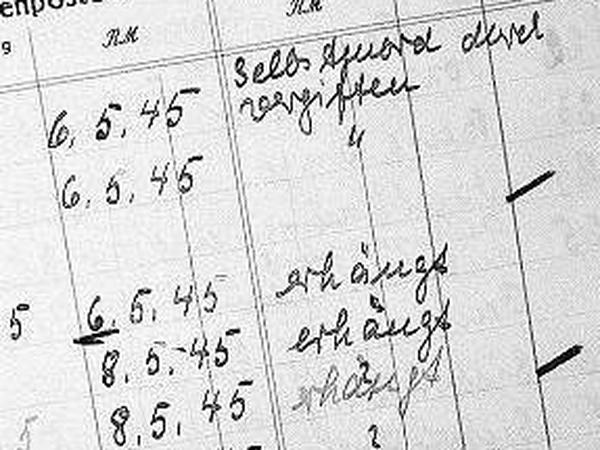 9 ЛМ ЛМ
Selbstmord durch
6. 5. 45 vergiften
6. 5. 45 "
5 6. 5. 45 erhängt
8. 5. 45 erhängt
5 8. 5. 45 erhängt